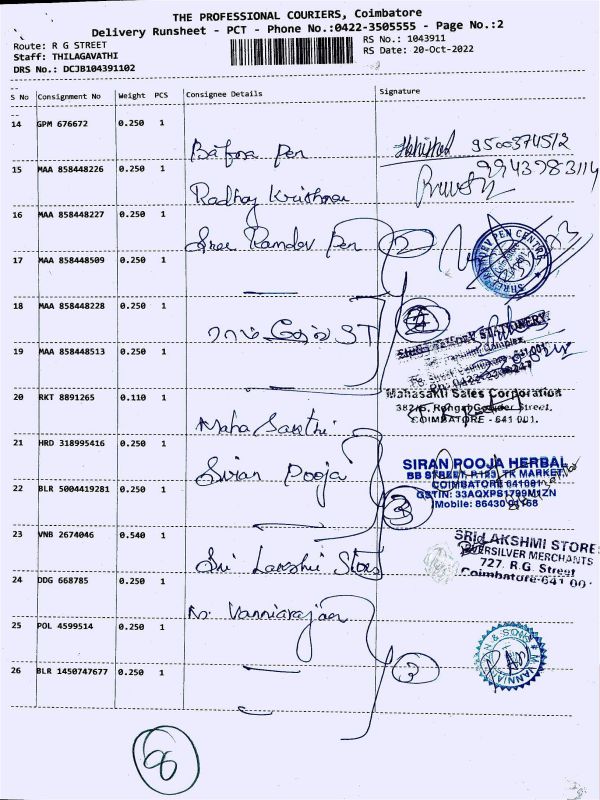 THE PROFESSIONAL COURIERS, Coimbatore
Delivery Runsheet - PCT - Phone No.:0422-3505555 - Page No.:2
Route: R G STREET
RS No.: 1043911
Staff: THILAGAVATHI
RS Date: 20-Oct-2022
DRS No.: DCJB104391102
S No Consignment No Weight PCS Consignee Details Signature
14 GPM 676672 0.250 1
Bafna Pen 9500374512
15 MAA 858448226 0.250 1
9943983114
Radhay Krishnan
16 MAA 858448227 0.250 1
Sree Ramdev Pen 2
17 MAA 858448509 0.250 1
18 MAA 858448228 0.250 1
ராம் தேவ் ST
19 MAA 858448513 0.250 1
20 RKT 8891265 0.110 1
Mahasakti Sales Corporation
COIMBATORE - 641 001.
Maha Sakthi
21 HRD 318995416 0.250 1
Siran Pooja
SIRAN POOJA HERBAL
BB STREET, TK MARKET
COIMBATORE 641001
GSTIN: 33AQXPS1799M1ZN
22 BLR 5004419281 0.250 1
3
23 VNB 2674046 0.540 1
Sri Lakshmi Stores
SRI LAKSHMI STORES
SILVER MERCHANTS
727, R.G. Street
Coimbatore-641 001
24 DDG 668785 0.250 1
N. Vanniarajan
25 POL 4599514 0.250 1
26 BLR 1450747677 0.250 1
3
8